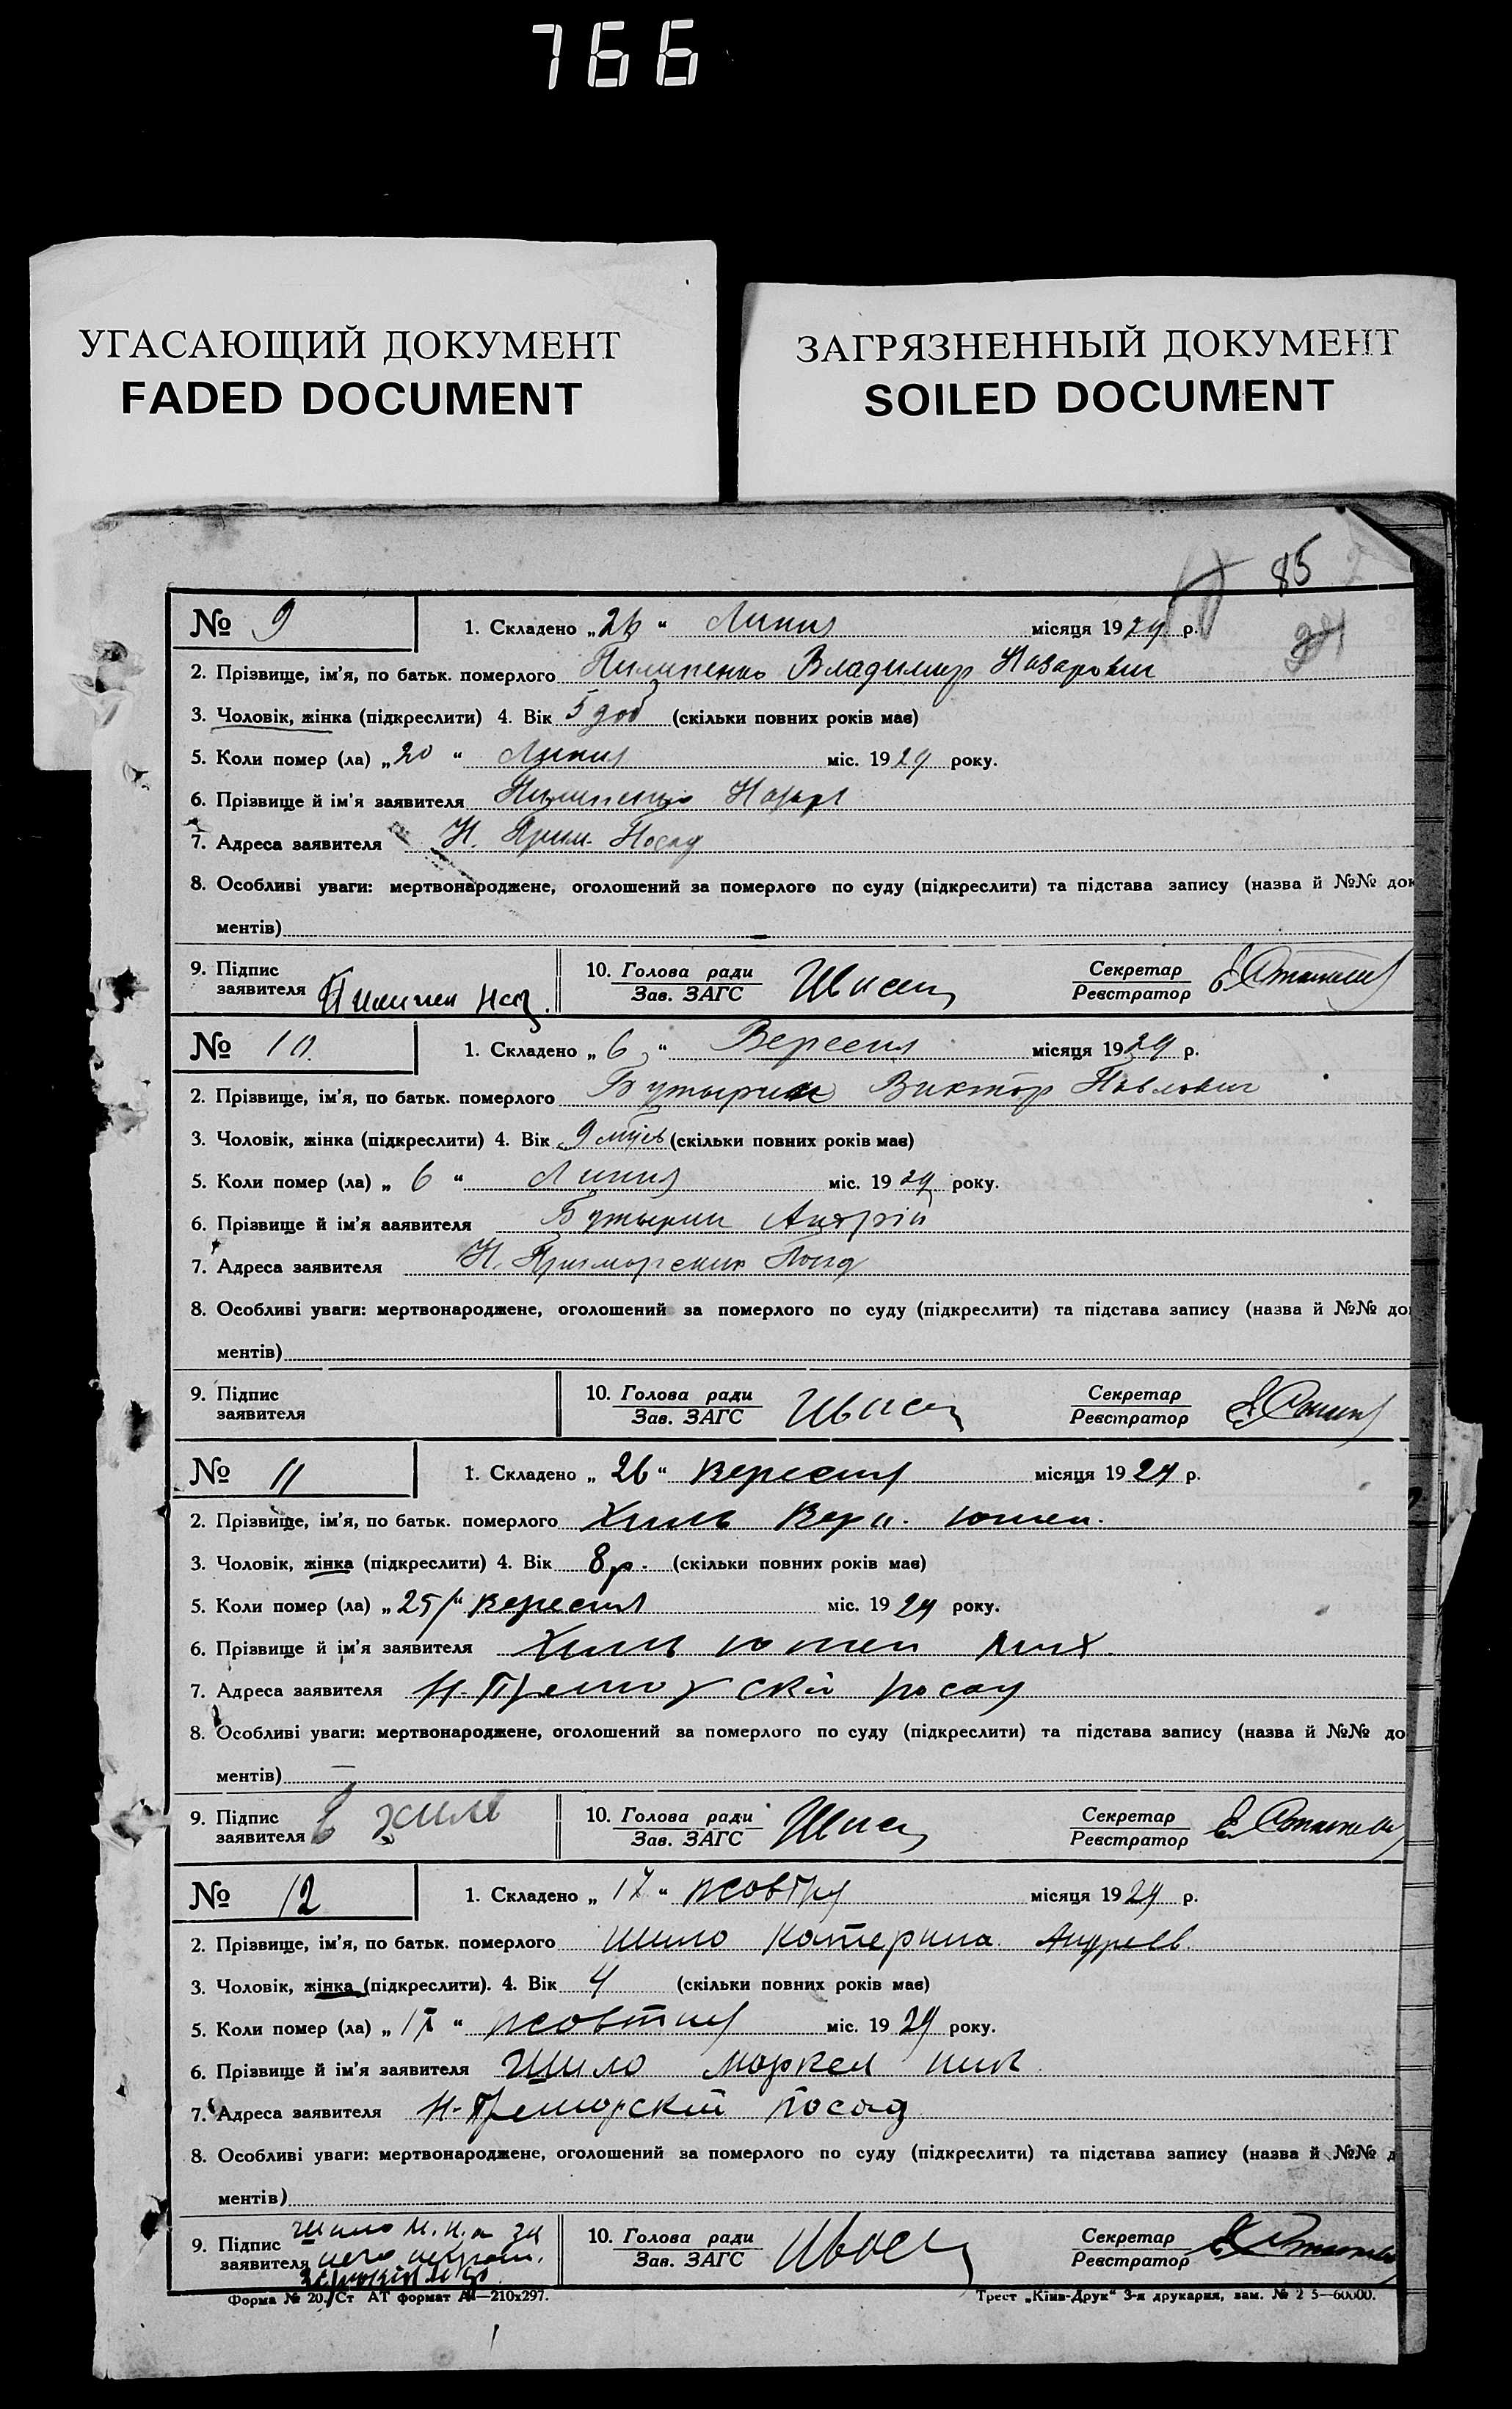 766
УГАСАЮЩИЙ ДОКУМЕНТ
FADED DOCUMENT
ЗАГРЯЗНЕННЫЙ ДОКУМЕНТ
SOILED DOCUMENT
85
№ 9
1. Складено „26“ Липня місяця 1929 р.
2. Прізвище, ім'я, по батьк. померлого Пилипенко Владимир Назарович
3. Чоловік, жінка (підкреслити) 4. Вік 5 доб (скільки повних років має)
5. Коли помер (ла) „20“ Липня міс. 1929 року.
6. Прізвище й ім'я заявителя Пилипенко Назар
7. Адреса заявителя Н. Прим. Посад
8. Особливі уваги: мертвонароджене, оголошений за померлого по суду (підкреслити) та підстава запису (назва й №№ док
ментів)
9. Підпис заявителя
10. Голова ради
Зав. ЗАГС
Секретар
Реєстратор
№ 10.
1. Складено „6“ Вересня місяця 1929 р.
2. Прізвище, ім'я, по батьк. померлого Бутырин Виктор Павлович
3. Чоловік, жінка (підкреслити) 4. Вік 9 (скільки повних років має)
5. Коли помер (ла) „6“ Липня міс. 1929 року.
6. Прізвище й ім'я заявителя Бутырин Андрій
7. Адреса заявителя Н. Приморський Посад
8. Особливі уваги: мертвонароджене, оголошений за померлого по суду (підкреслити) та підстава запису (назва й №№ до
ментів)
9. Підпис заявителя
10. Голова ради
Зав. ЗАГС
Секретар
Реєстратор
№ 11
1. Складено „26“ Вересня місяця 1929 р.
2. Прізвище, ім'я, по батьк. померлого Хиль Вера
3. Чоловік, жінка (підкреслити) 4. Вік 8 р. (скільки повних років має)
5. Коли помер (ла) „25“ Вересня міс. 1929 року.
6. Прізвище й ім'я заявителя Хиль
7. Адреса заявителя Н-Приморский посад
8. Особливі уваги: мертвонароджене, оголошений за померлого по суду (підкреслити) та підстава запису (назва й №№ до
ментів)
9. Підпис заявителя Хиль
10. Голова ради
Зав. ЗАГС
Секретар
Реєстратор
№ 12
1. Складено „17“ жовтня місяця 1929 р.
2. Прізвище, ім'я, по батьк. померлого Шило Катерина Андреев.
3. Чоловік, жінка (підкреслити). 4. Вік 4 (скільки повних років має)
5. Коли помер (ла) „17“ жовтня міс. 1929 року.
6. Прізвище й ім'я заявителя Шило Маркел
7. Адреса заявителя Н-Приморский посад
8. Особливі уваги: мертвонароджене, оголошений за померлого по суду (підкреслити) та підстава запису (назва й №№ д
ментів)
9. Підпис заявителя Шило
10. Голова ради
Зав. ЗАГС
Секретар
Реєстратор
Форма № 20. Ст АТ формат А4—210х297.
Трест „Київ-Друк“ 3-я друкарня, зам. № 2 5—60000.